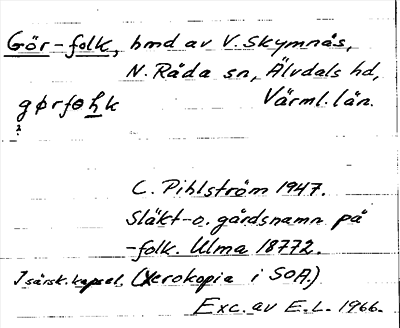 Gör-folk, bmd av V. Skymnäs,
N. Råda sn, Älvdals hd,
gørfɵḷk Värml. län.
?
C. Pihlström 1947.
Släkt- o. gårdsnamn på
-folk. Ulma 18772.
I särsk. kapsel. (Xerokopia i SOA.)
Exc. av E.L. 1966.